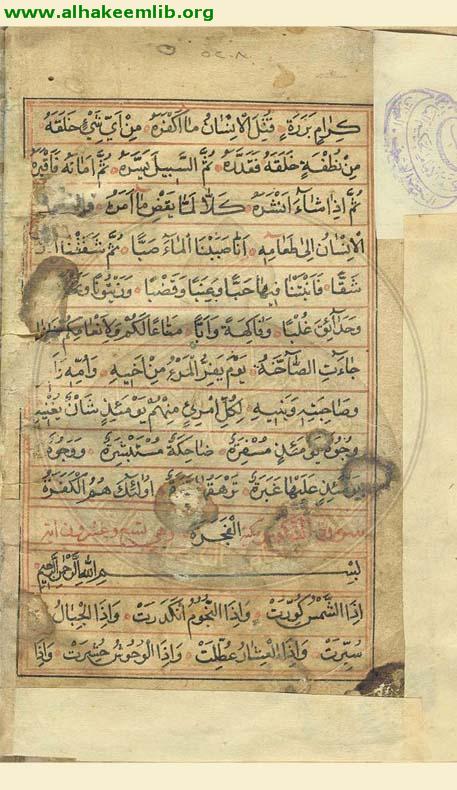 www.alhakeemlib.org
كِرَامٍ بَرَرَةٍ قُتِلَ الْاِنْسَانُ مَا اَكْفَرَهُ مِنْ اَيِّ شَيْءٍ خَلَقَهُ
مِنْ نُطْفَةٍ خَلَقَهُ فَقَدَّرَهُ ثُمَّ السَّبِيلَ يَسَّرَهُ ثُمَّ اَمَاتَهُ فَاَقْبَرَهُ
ثُمَّ اِذَا شَاءَ اَنْشَرَهُ كَلَّا لَمَّا يَقْضِ مَا اَمَرَهُ
الْاِنْسَانُ اِلٰى طَعَامِهِ اَنَّا صَبَبْنَا الْمَاءَ صَبًّا ثُمَّ شَقَقْنَا
شَقًّا فَاَنْبَتْنَا فِيهَا حَبًّا وَعِنَبًا وَقَضْبًا وَزَيْتُونًا
وَحَدَائِقَ غُلْبًا وَفَاكِهَةً وَاَبًّا مَتَاعًا لَكُمْ وَلِاَنْعَامِكُمْ
جَاءَتِ الصَّاخَّةُ يَوْمَ يَفِرُّ الْمَرْءُ مِنْ اَخِيهِ وَاُمِّهِ
وَصَاحِبَتِهِ وَبَنِيهِ لِكُلِّ امْرِئٍ مِنْهُمْ يَوْمَئِذٍ شَاْنٌ يُغْنِيهِ
وُجُوهٌ يَوْمَئِذٍ مُسْفِرَةٌ ضَاحِكَةٌ مُسْتَبْشِرَةٌ وَوُجُوهٌ
يَوْمَئِذٍ عَلَيْهَا غَبَرَةٌ تَرْهَقُهَا اُولٰئِكَ هُمُ الْكَفَرَةُ
سورة الْفَجَرَةُ وهي تسع وعشرون
بِسْمِ اللهِ الرَّحْمٰنِ الرَّحِيمِ
اِذَا الشَّمْسُ كُوِّرَتْ وَاِذَا النُّجُومُ انْكَدَرَتْ وَاِذَا الْجِبَالُ
سُيِّرَتْ وَاِذَا الْعِشَارُ عُطِّلَتْ وَاِذَا الْوُحُوشُ حُشِرَتْ وَاِذَا